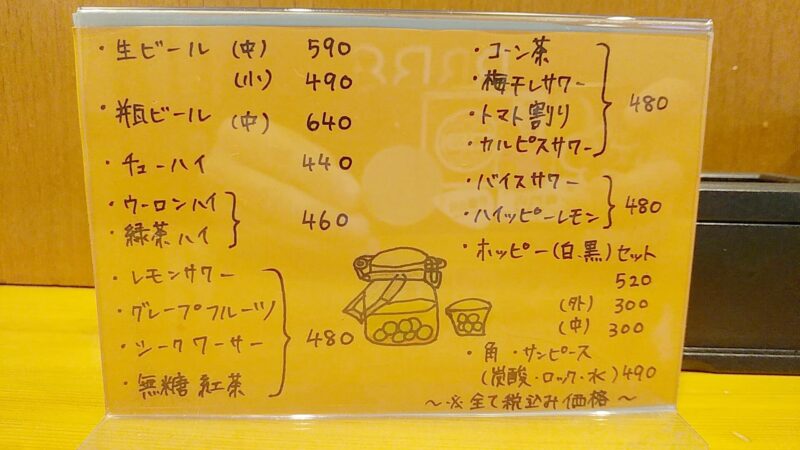 ・生ビール (中) 590
(小) 490
・瓶ビール (中) 640
・チューハイ 440
・ウーロンハイ
・緑茶ハイ
460
・レモンサワー
・グレープフルーツ
・シークワーサー
・無糖紅茶
480
・コーン茶
・梅干しサワー
・トマト割り
・カルピスサワー
480
・バイスサワー
・ハイッピーレモン
480
・ホッピー(白、黒)セット
520
(外) 300
(中) 300
・角・サンピース
(炭酸・ロック・水) 490
〜※全て税込み価格〜